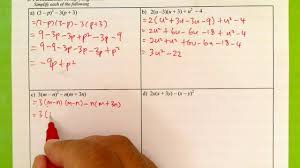 Simplify each of the following
a) (3 – p)² – 3(p + 3)
= (3-p)(3-p) - 3(p+3)
= 9 - 3p - 3p + p² - 3p - 9
= 9 - 9 - 3p - 3p - 3p + p²
= -9p + p²
b) 2(u – 3)(u + 3) + u² – 4
= 2(u² + 3u - 3u - 9) + u² - 4
= 2u² + 6u - 6u - 18 + u² - 4
= 2u² + u² + 6u - 6u - 18 - 4
= 3u² - 22
c) 3(m – n)² – n(m + 3n)
= 3(m-n)(m-n) - n(m+3n)
= 3(
d) (x + y)(x – y) –